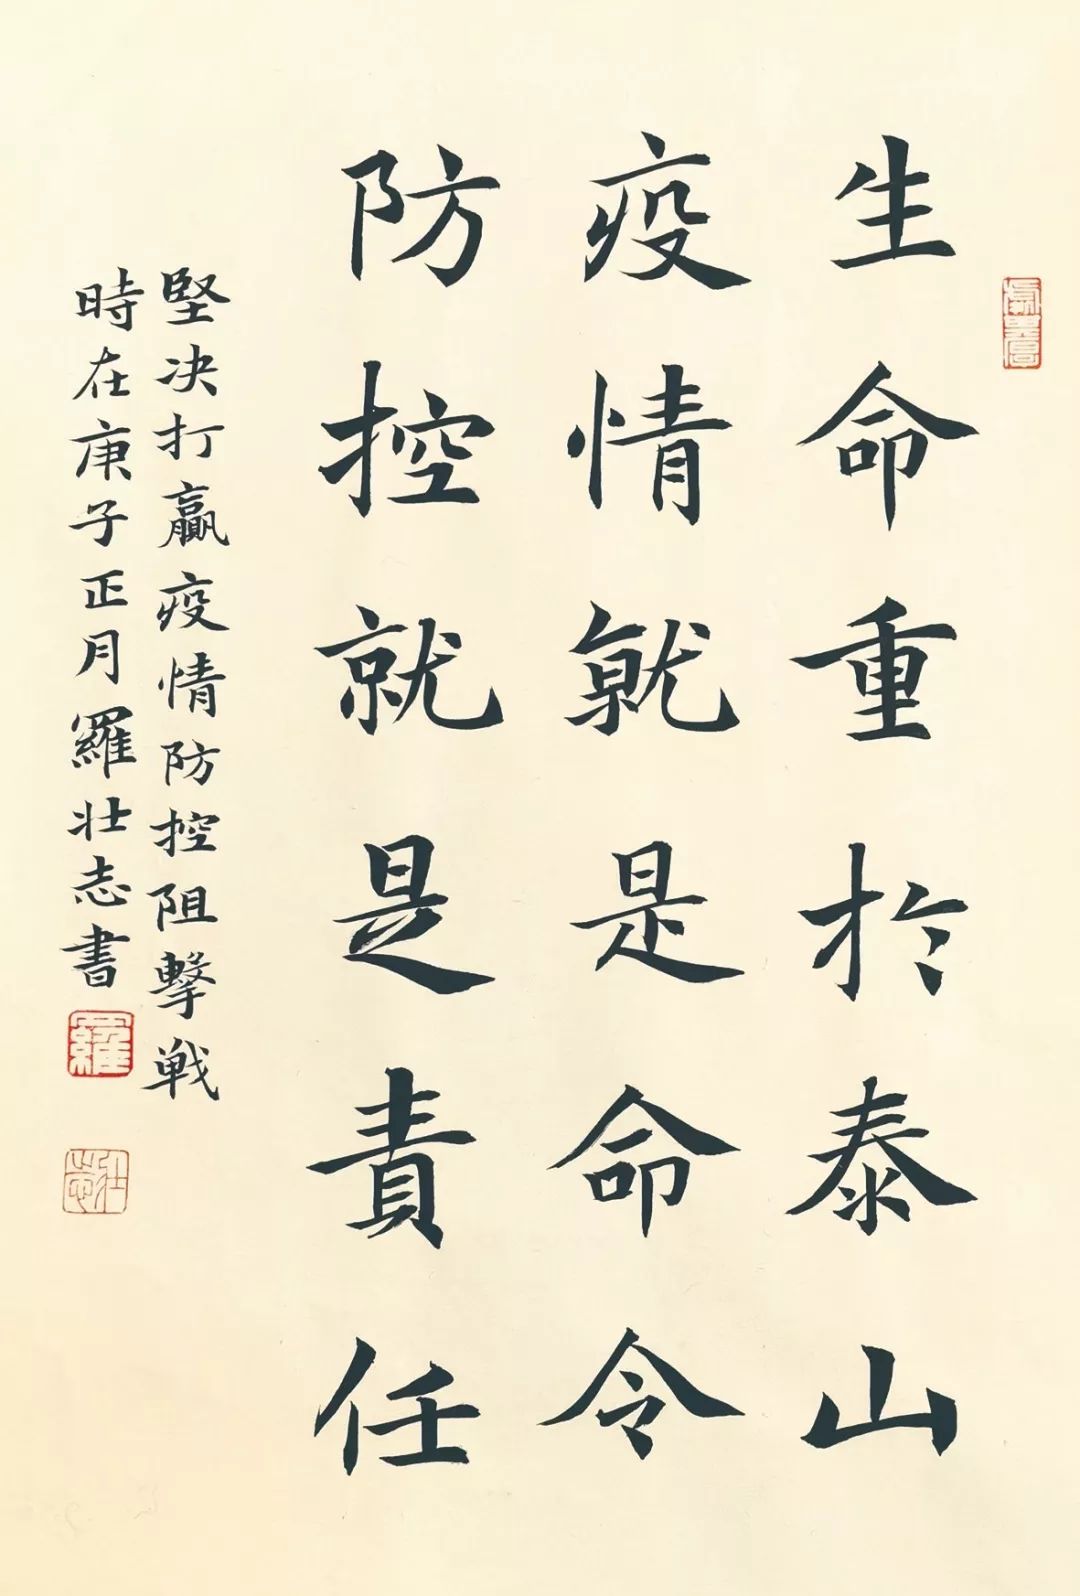 生命重於泰山
疫情就是命令
防控就是責任
堅决打贏疫情防控阻擊戦
時在庚子正月羅壯志書
羅
壯志